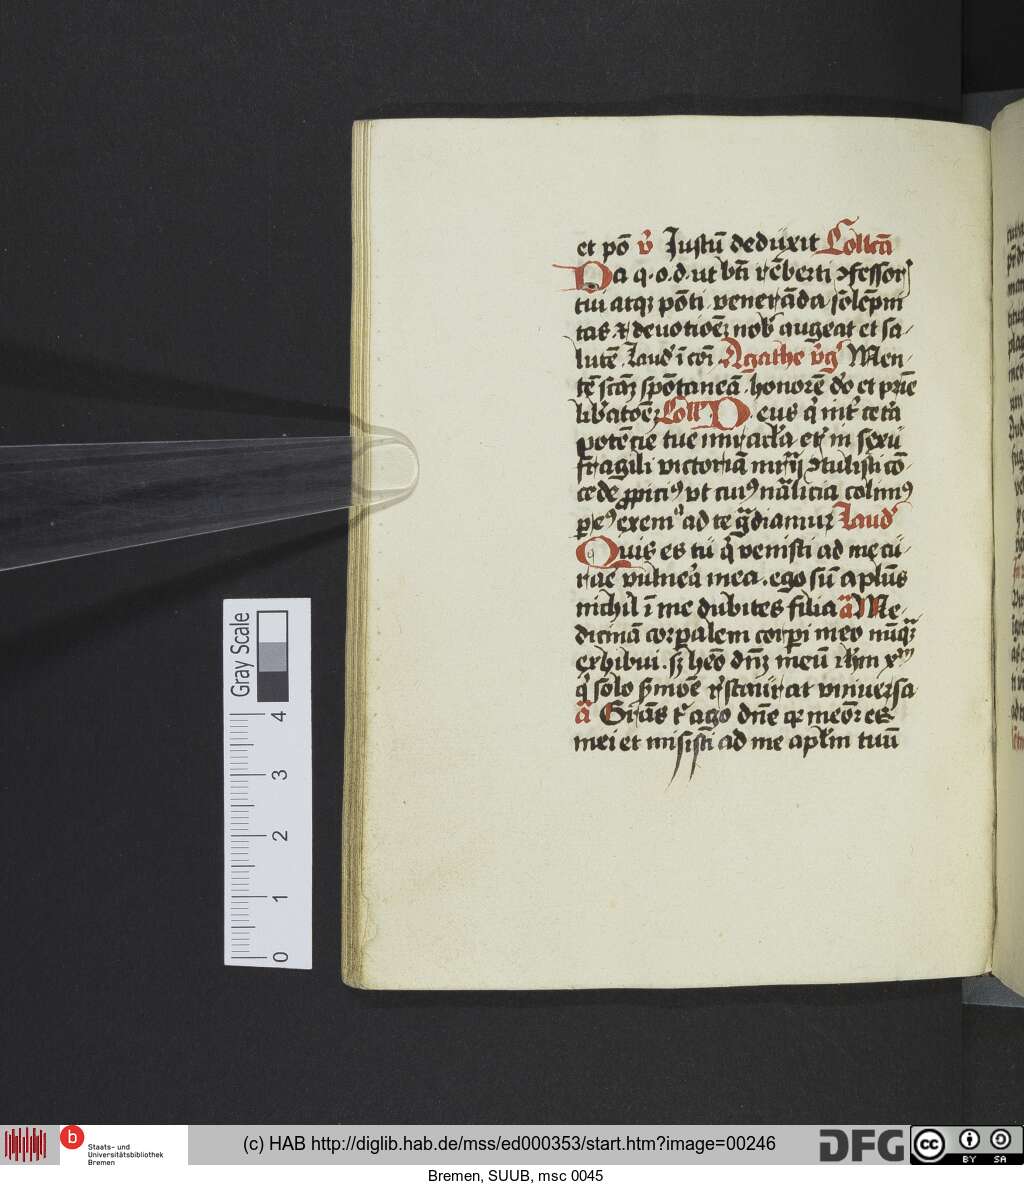 et pō v̄ Justū deduxit Collcā
Da q. o. d. ut bti rēberti ɔfessor
tui atqz pōti venerāda sōlēpni
tas & deuotioēz nob augeat et sa-
lutē Laud ī com Agathe v̄g Men-
tē scāz spōtaneā honorē do et prie
libatoēz Coll Deus q int cetā
potēcie tue miracla et in sexu
fragili victoriā mrij ɔtulisti cō-
cede ppici9 vt cui9 nālicia colim9
p e9 exem ad te gdiamur Laud
Quis es tu q venisti ad me cu-
rare vulnea mea. ego sū aplus
nichil ī me dubites filia ā Me-
dicinā corpalem corpi meo nūqz
exhibui. sz heo dnz meū ihm xm
q solo smōe restaurat vniuersa
ā Grās t ago dne qr meōr es
mei et misisti ad me aplm tuū
Gray Scale
4
3
2
1
0
b
Staats- und
Universitätsbibliothek
Bremen
(c) HAB http://diglib.hab.de/mss/ed000353/start.htm?image=00246
DFG
cc
BY SA
Bremen, SUUB, msc 0045